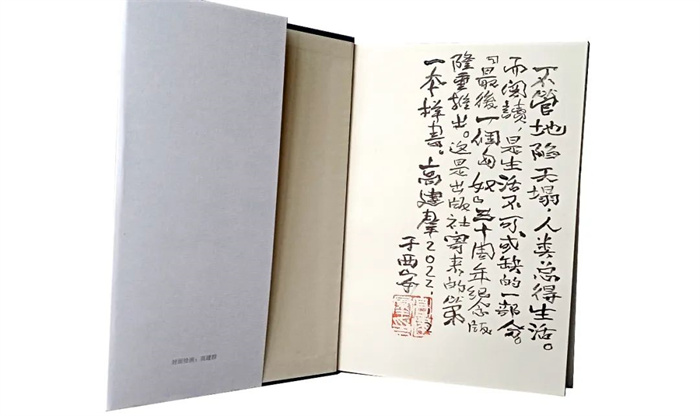 不管地陷天塌，人类总得生活。
而阅讀，是生活不可或缺的一部分。
「最後一個匈奴」三十周年纪念版
隆重推出。这是出版社寄来的第
一本样書。高建群2022.
于西安
高建群